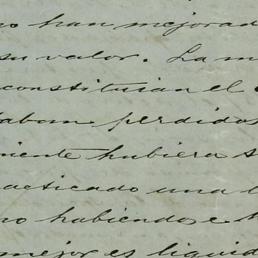 no han mejorado
su valor. La m
constituian el
daban perdidos
mente hubiera s
racticado una l
no habiendose h
mejor es liquid